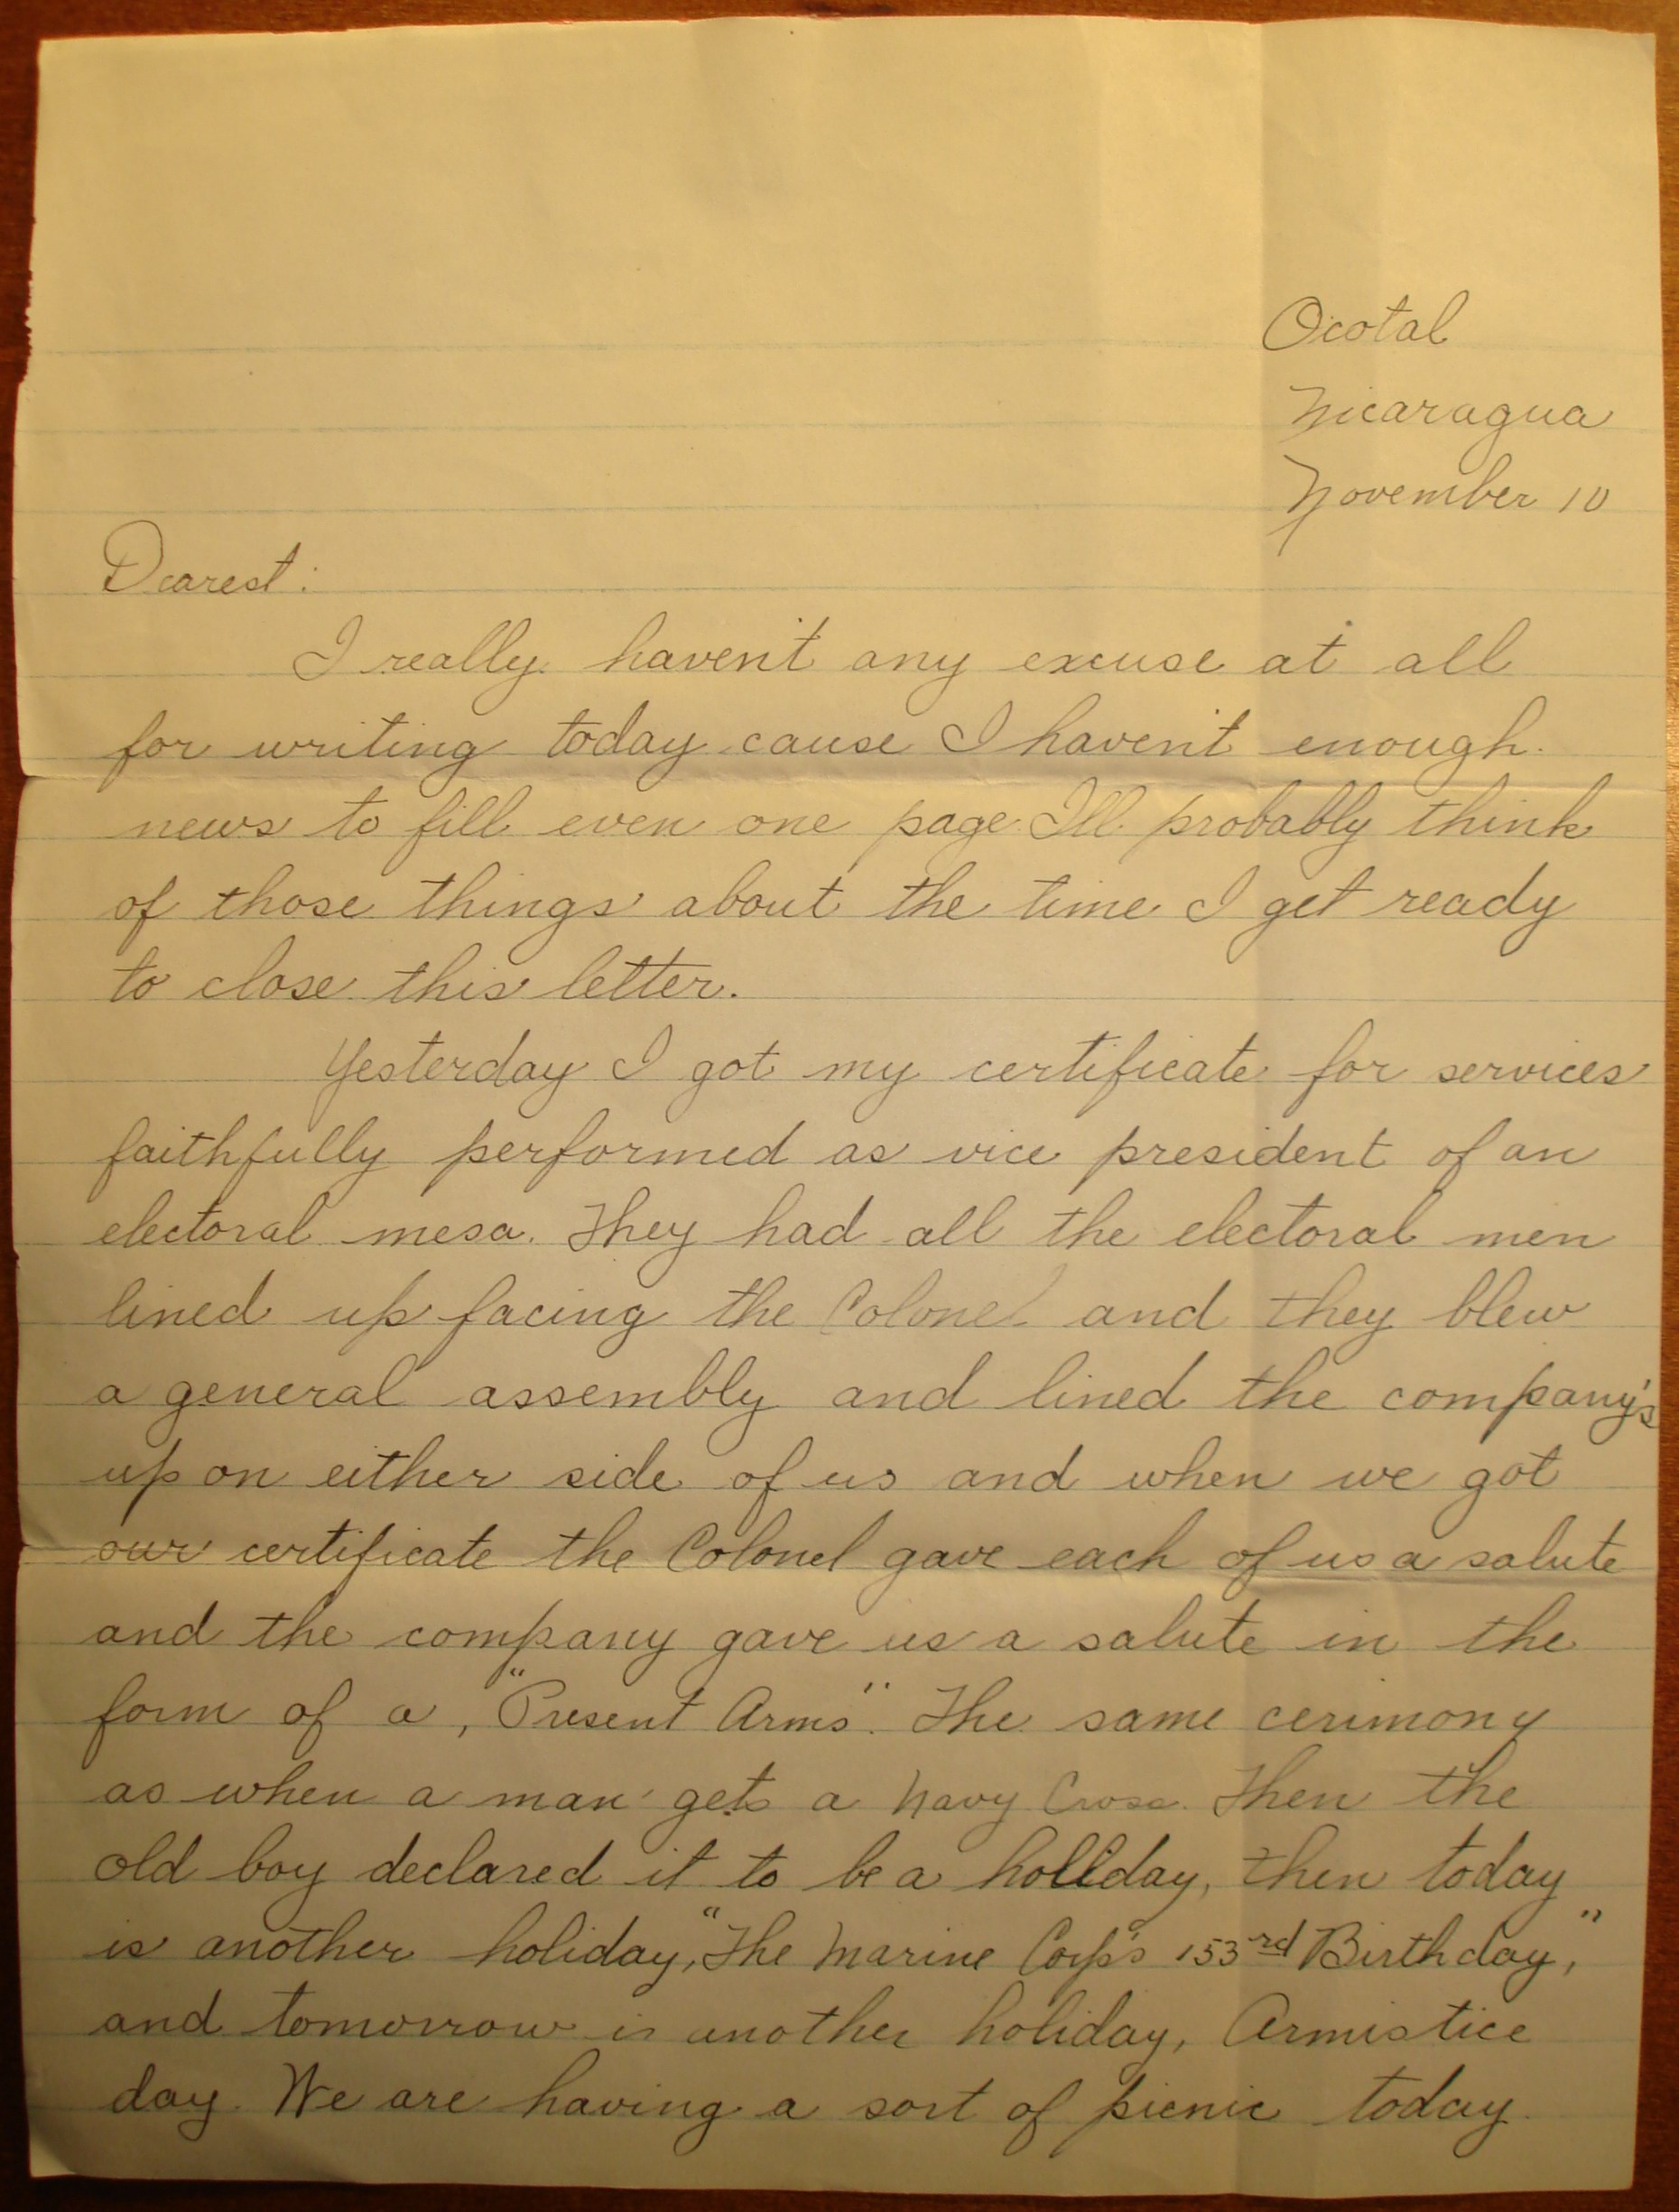 Ocotal
Nicaragua
November 10
Dearest:
I really haven't any excuse at all
for writing today cause I haven't enough
news to fill even one page I'll probably think
of those things about the time I get ready
to close this letter.
Yesterday I got my certificate for services
faithfully performed as vice president of an
electoral mesa. They had all the electoral men
lined up facing the Colonel and they blew
a general assembly and lined the company's
up on either side of us and when we got
our certificate the Colonel gave each of us a salute
and the company gave us a salute in the
form of a, "Present Arms". The same cerimony
as when a man gets a Navy Cross. Then the
old boy declared it to be a holiday, then today
is another holiday, "The Marine Corp's 153rd Birthday,"
and tomorrow is another holiday, Armistice
day. We are having a sort of picnic today.